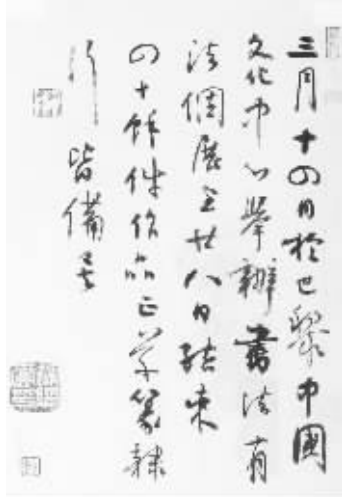 三月十四日於巴黎中國
文化中心舉辦書法首
次個展至廿八日結束
四十餘件作品正草篆隸
行皆備矣